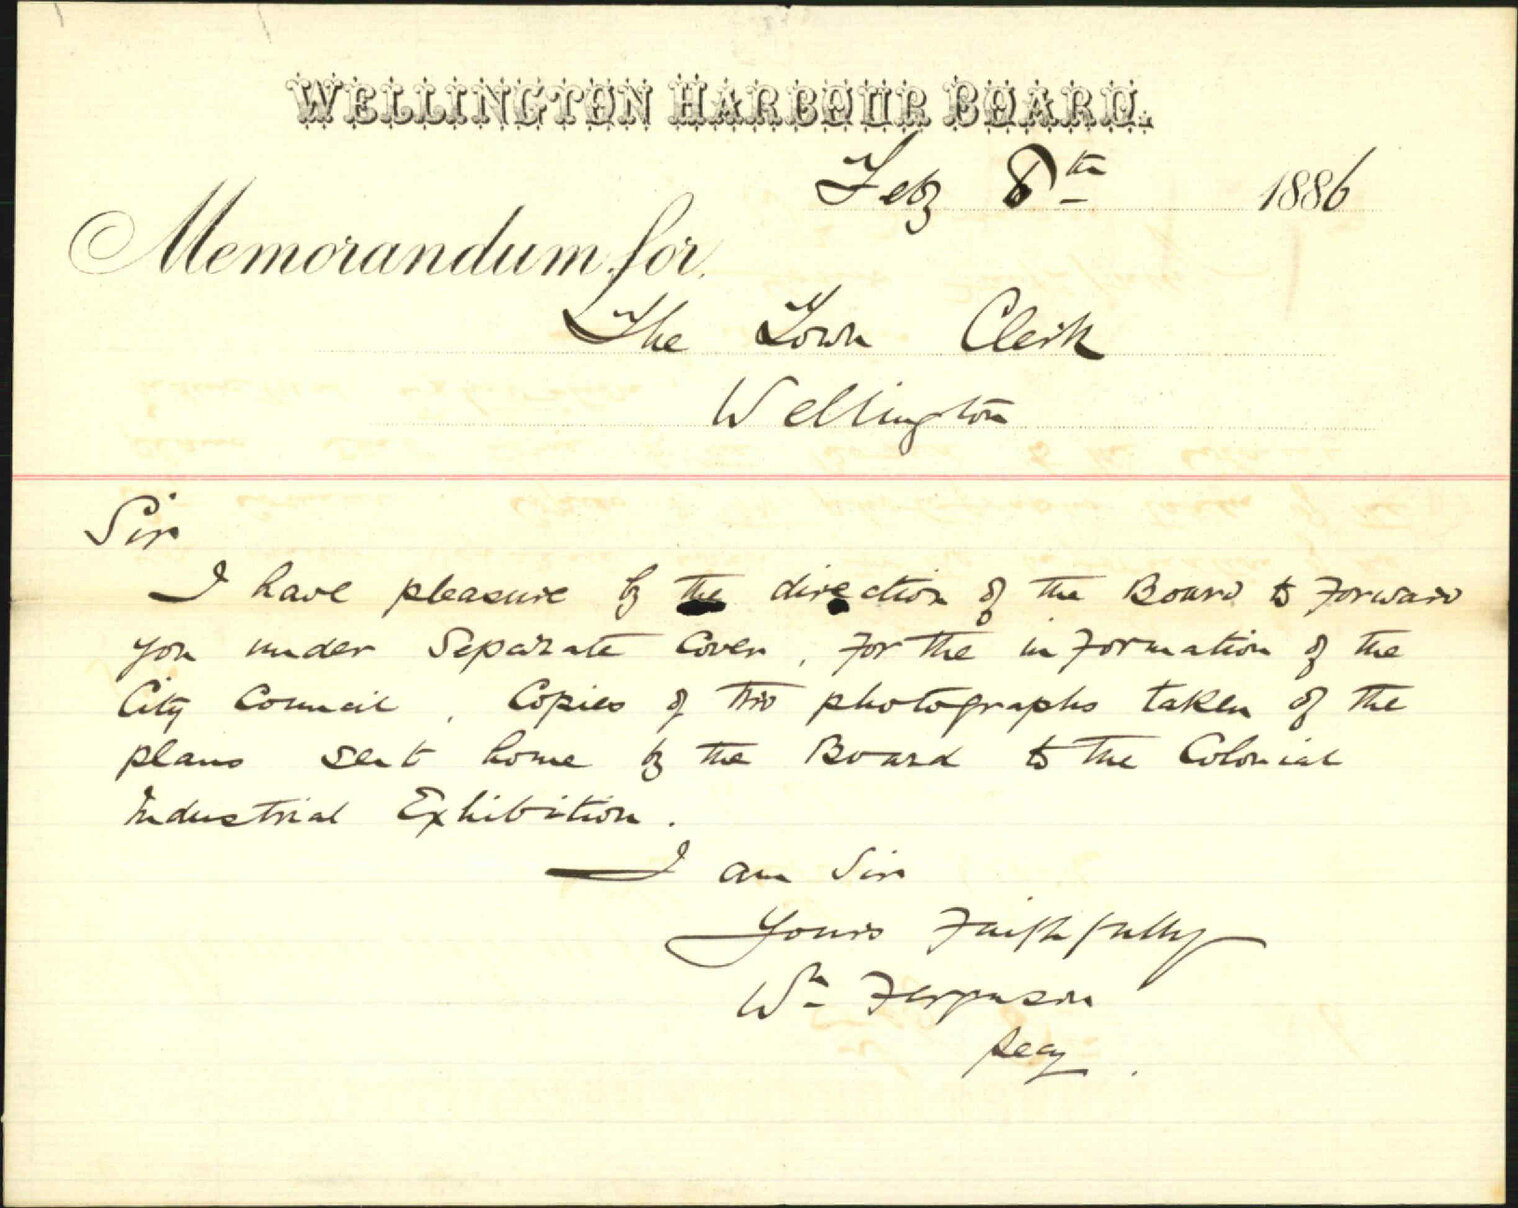 WELLINGTON HARBOUR BOARD.
Feby 8th 1886
Memorandum for
The Town Clerk
Wellington
Sir
I have pleasure by the direction of the Board to forward
you under separate cover, for the information of the
City Council, copies of two photographs taken of the
plans sent home by the Board to the Colonial
Industrial Exhibition.
I am Sir
Yours Faithfully
Wm Ferguson
Secy.